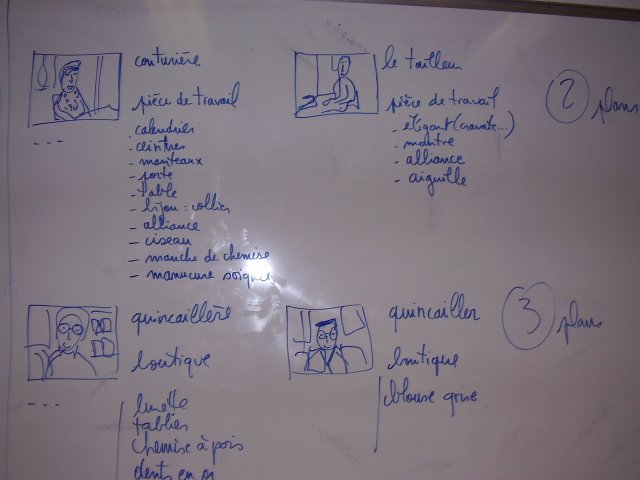 couturière
pièce de travail
- calendriers
- ceintres
- manteaux
- porte
- table
- bijou : collier
- alliance
- ciseau
- manche de chemise
- manucure soignée
---
le tailleur
pièce de travail
- élégant (cravate...)
- montre
- alliance
- aiguille
2 plans
quincaillère
boutique
lunette
tablier
chemise à pois
dents en or
---
quincailler
boutique
blouse grise
3 plans